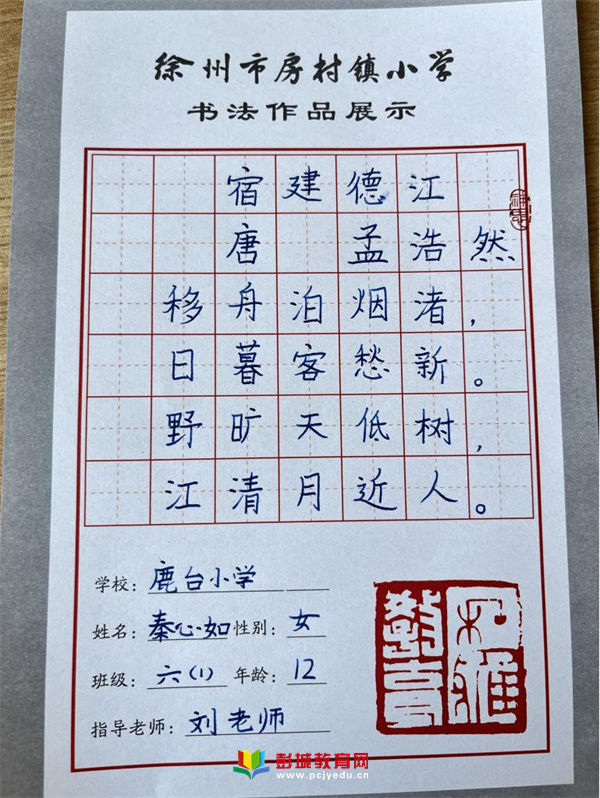 徐州市房村镇小学
书法作品展示
宿建德江
唐 孟浩然
移舟泊烟渚,
日暮客愁新。
野旷天低树,
江清月近人。
学校: 鹿台小学
姓名: 秦心如 性别: 女
班级: 六(1) 年龄: 12
指导老师: 刘老师
彭城教育网
www.pcjyedu.cn